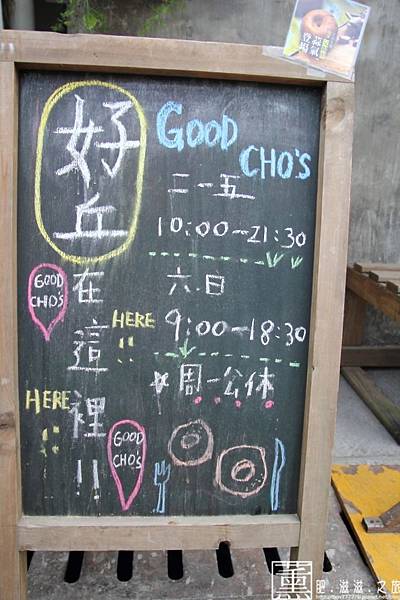 好丘
在這裡!!
GOOD
CHO'S
二-五
10:00-21:30
六.日
9:00-18:30
周一公休
GOOD
CHO'S
HERE
!!
HERE
!!
GOOD
CHO'S
肥.滋滋.之旅